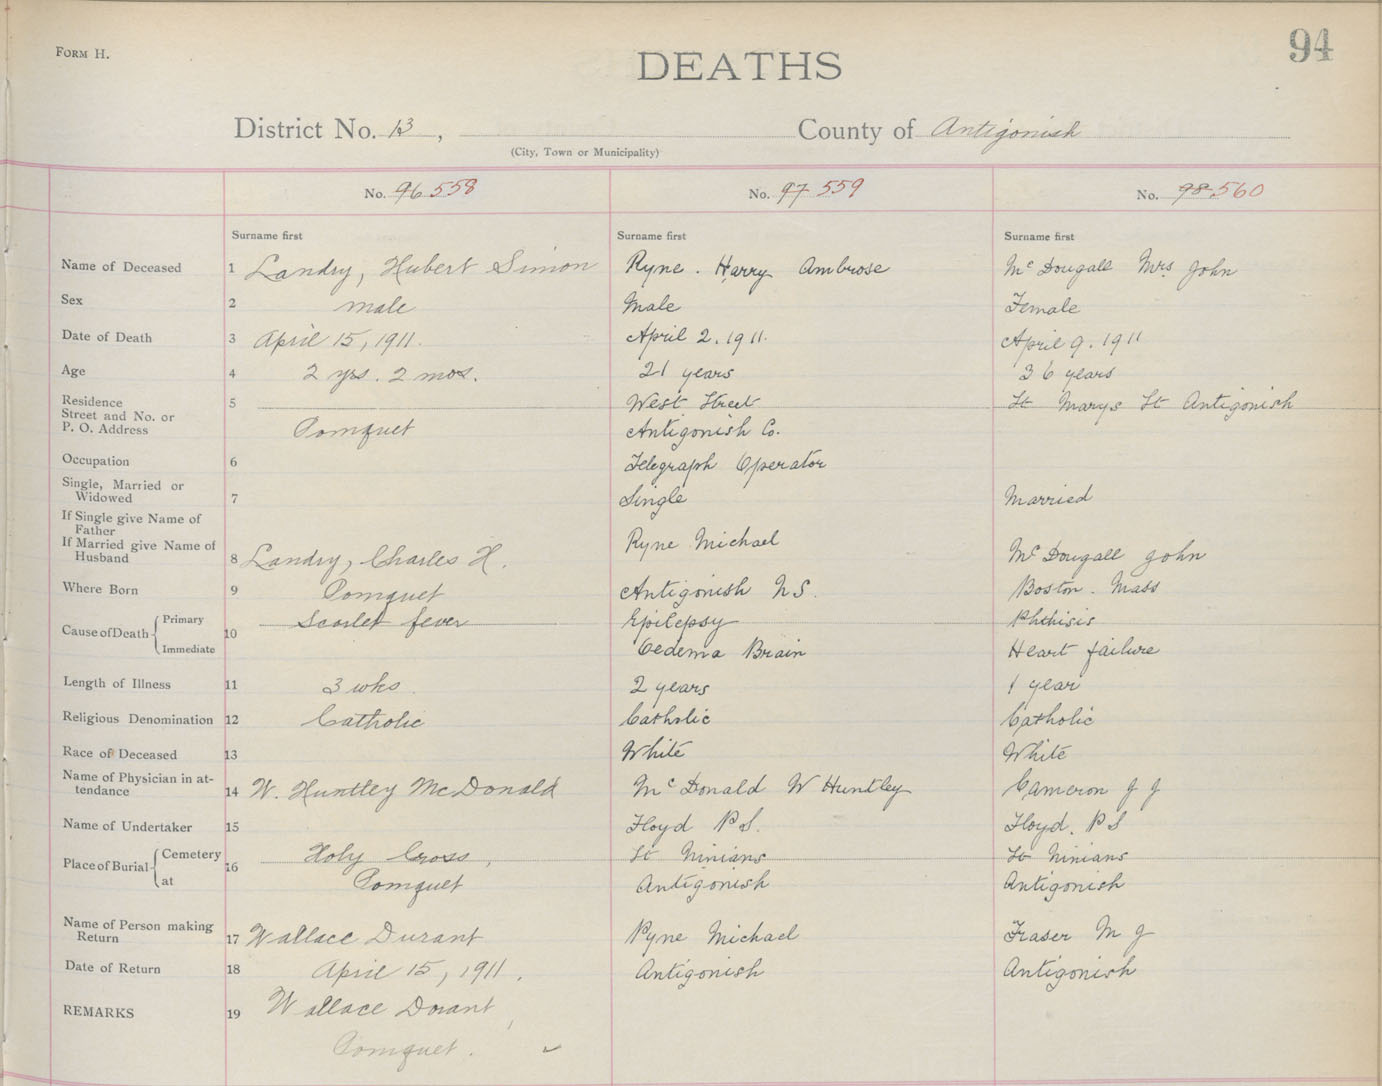 FORM H.
94
DEATHS
District No. 13 , County of Antigonish
(City, Town or Municipality)
No. 96 558 No. 97 559 No. 98 560
Surname first Surname first Surname first
Name of Deceased 1 Landry, Hubert Simon Ryne. Harry Ambrose Mc Dougall Mrs John
Sex 2 male Male Female
Date of Death 3 April 15, 1911. April 2. 1911. April 9. 1911
Age 4 2 yrs. 2 mos. 21 years 36 years
Residence 5 West Street St Marys St Antigonish
Street and No. or
P. O. Address Pomquet Antigonish Co.
Occupation 6 Telegraph Operator
Single, Married or
Widowed 7 Single Married
If Single give Name of
Father
If Married give Name of Ryne Michael
Husband 8 Landry, Charles H. McDougall John
Where Born 9 Pomquet Antigonish N.S. Boston. Mass
Cause of Death Primary 10 Scarlet fever Epilepsy Phthisis
Immediate Oedema Brain Heart failure
Length of Illness 11 3 wks. 2 years 1 year
Religious Denomination 12 Catholic Catholic Catholic
Race of Deceased 13 White White
Name of Physician in at-
tendance 14 W. Huntley McDonald Mc Donald W Huntley Cameron J J
Name of Undertaker 15 Floyd P S. Floyd. P S
Place of Burial Cemetery 16 Holy Cross, St Ninians St Ninians
at Pomquet Antigonish Antigonish
Name of Person making
Return 17 Wallace Durant Ryne Michael Fraser M J
Date of Return 18 April 15, 1911. Antigonish Antigonish
REMARKS 19 Wallace Dorant,
Pomquet.